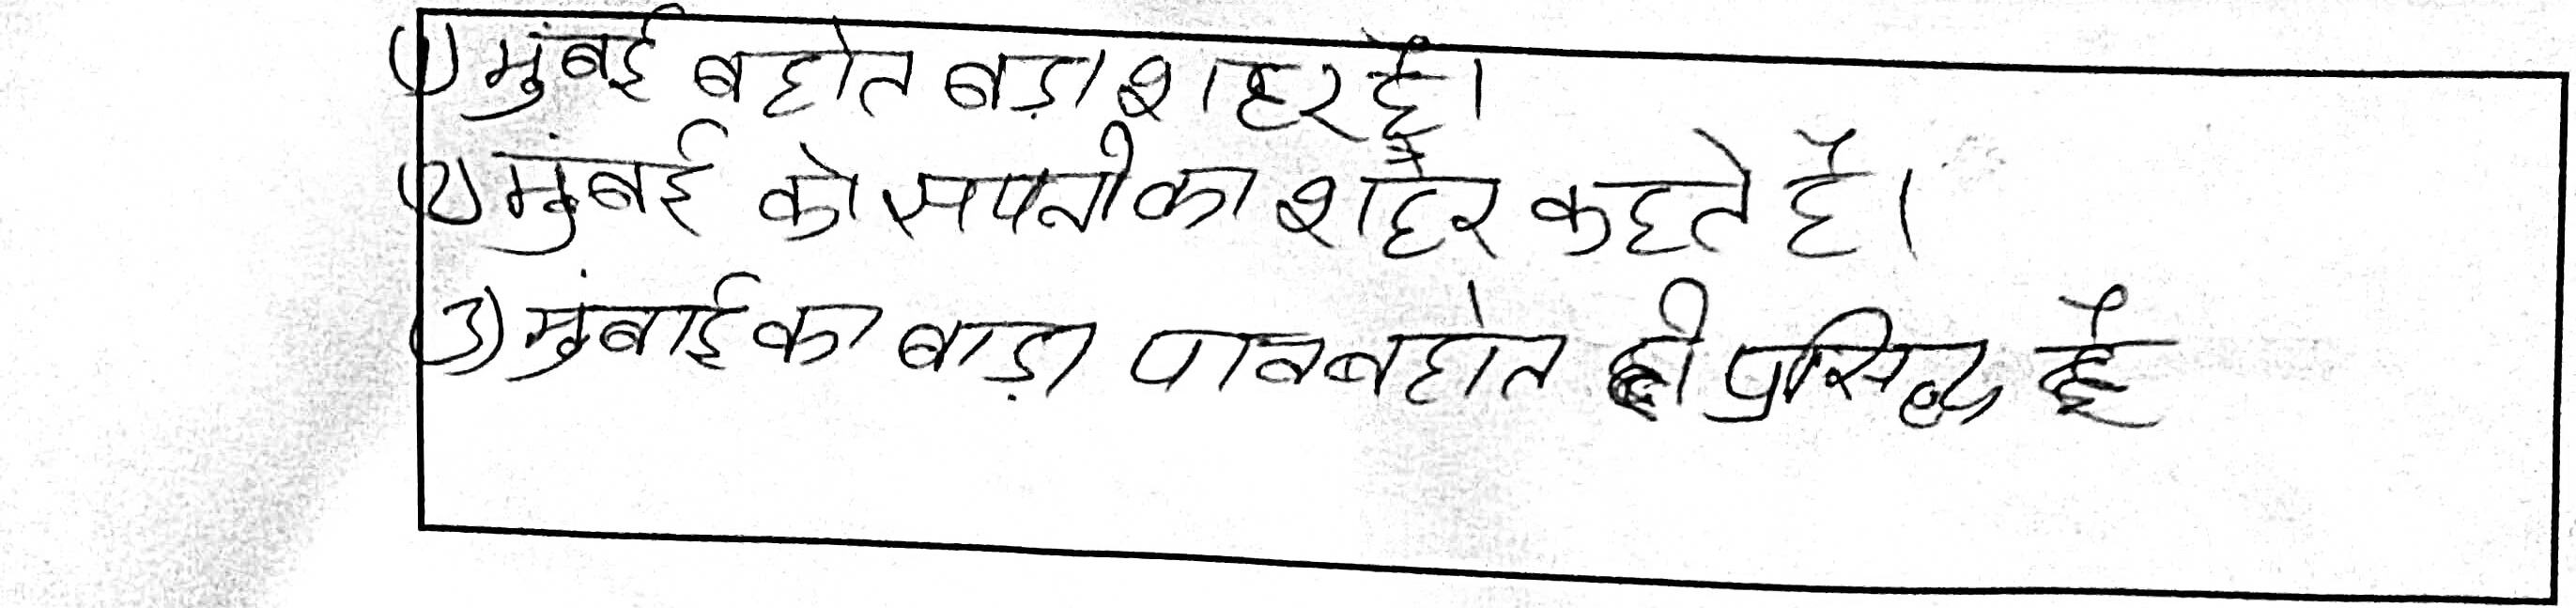 (1) मुंबई बहोत बड़ा शहर है।
(2) मुंबई को सपनो का शहेर कहते है।
(3) मुंबाई का बाड़ा पाव बहोत ही प्रसिद्ध है